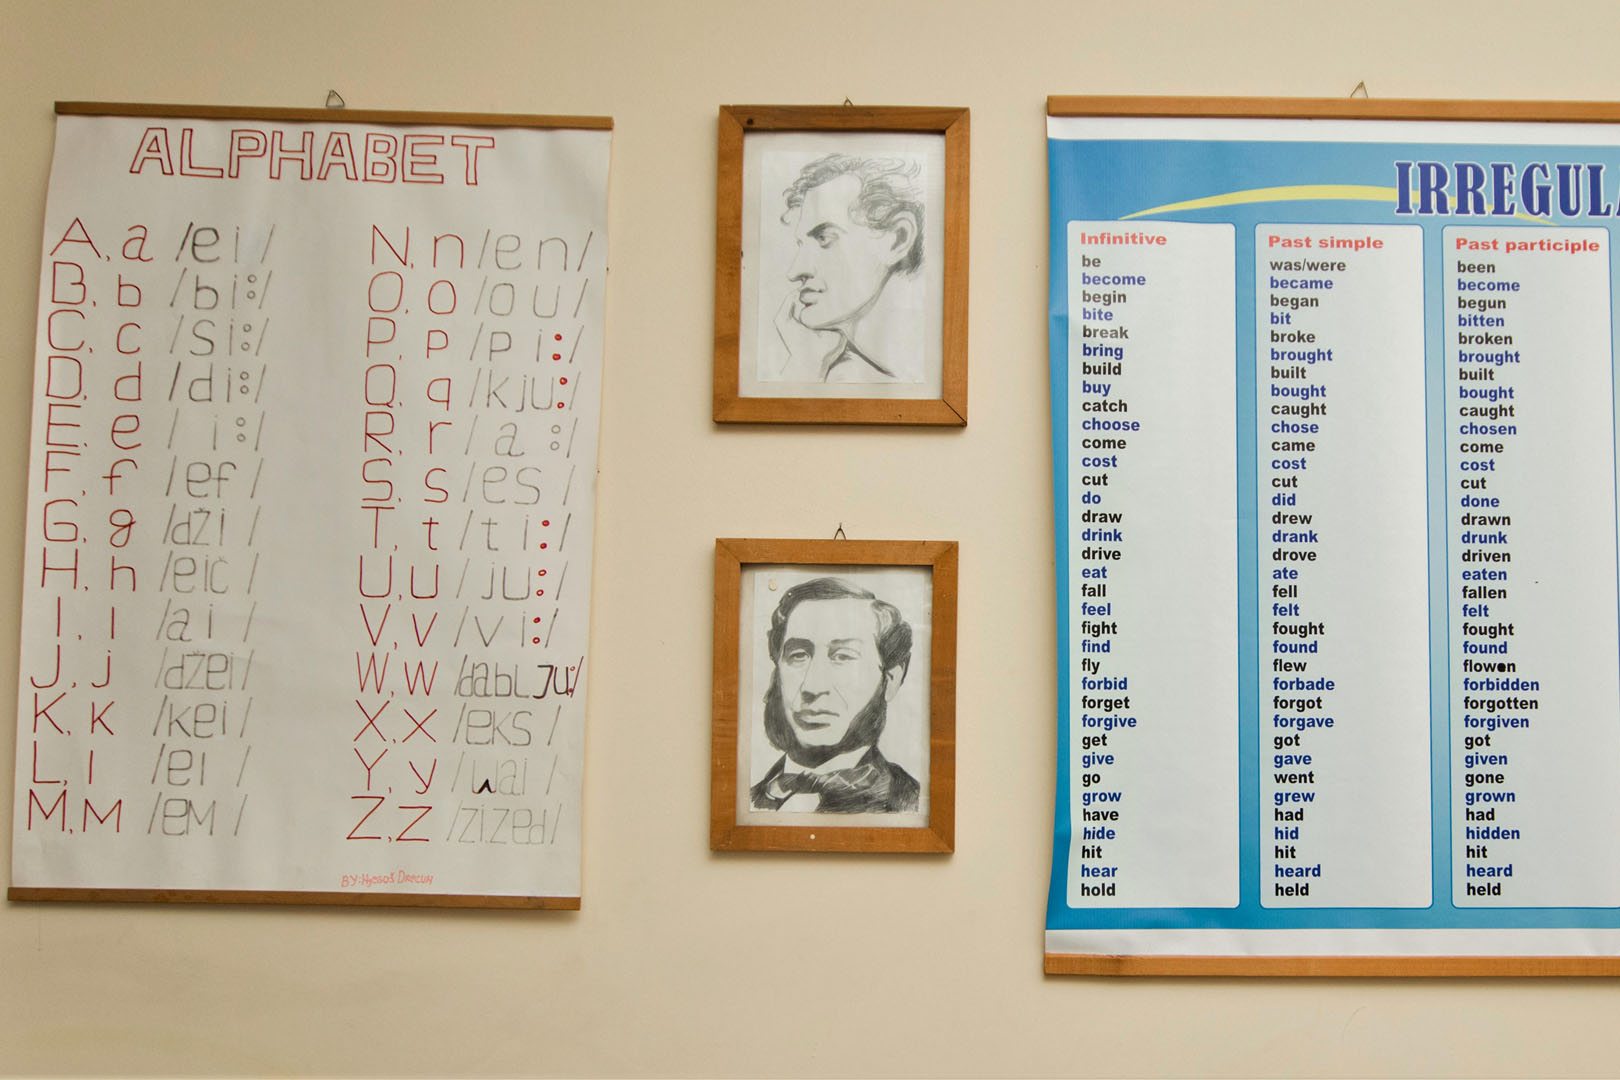 ALPHABET
A, a /ei/
B, b /bi:/
C, c /si:/
D, d /di:/
E, e /i:/
F, f /ef/
G, g /dži/
H, h /eič/
I, I /ai/
J, j /džei/
K, K /kei/
L, l /el/
M, M /eM/
N, n /en/
O, o /ou/
P, p /pi:/
Q, q /kju:/
R, r /a:/
S, s /es/
T, t /ti:/
U, u /ju:/
V, v /vi:/
W, w /dabL JU:/
X, x /eks/
Y, y /wai/
Z, z /zi.zed/
BY:
IRREGUL
Infinitive
be
become
begin
bite
break
bring
build
buy
catch
choose
come
cost
cut
do
draw
drink
drive
eat
fall
feel
fight
find
fly
forbid
forget
forgive
get
give
go
grow
have
hide
hit
hear
hold
Past simple
was/were
became
began
bit
broke
brought
built
bought
caught
chose
came
cost
cut
did
drew
drank
drove
ate
fell
felt
fought
found
flew
forbade
forgot
forgave
got
gave
went
grew
had
hid
hit
heard
held
Past participle
been
become
begun
bitten
broken
brought
built
bought
caught
chosen
come
cost
cut
done
drawn
drunk
driven
eaten
fallen
felt
fought
found
flowen
forbidden
forgotten
forgiven
got
given
gone
grown
had
hidden
hit
heard
held